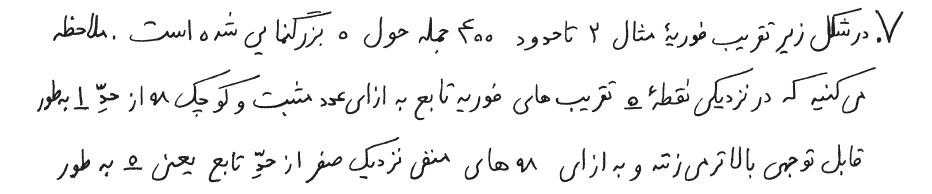 ۷. در شکل زیر تقریب فوریهٔ مثال ۲ تا حدود ۴۰۰ جمله حول ۰ بزرگنمایی شده است. ملاحظه
می‌کنید که در نزدیکی نقطهٔ ۰ تقریب‌های فوریه تابع به ازای عدد مثبت و کوچک x از حدِّ 1 به‌طور
قابل توجهی بالاتر می‌زند و به ازای x های منفی نزدیک صفر از حدِّ تابع یعنی ۰ به طور